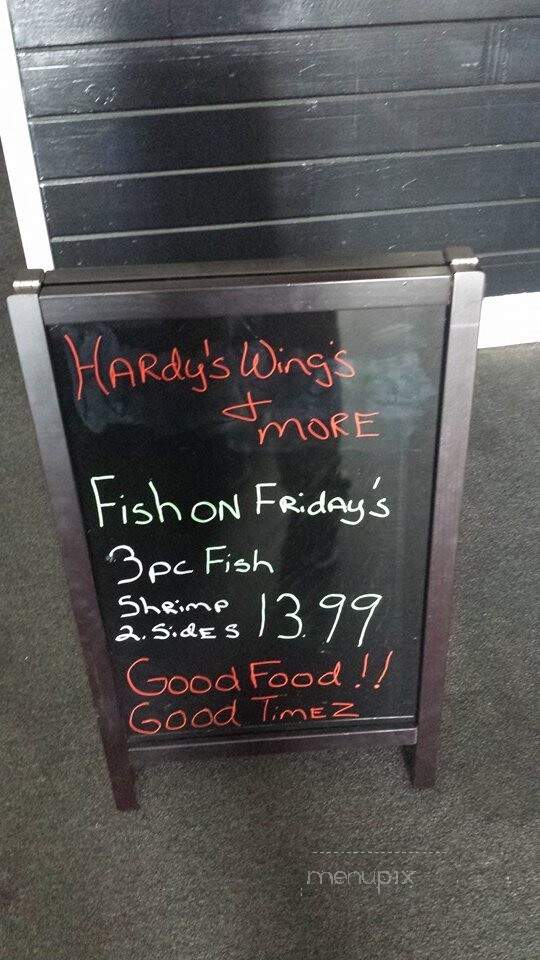 HARdy's Wing's
+ MORE
Fish ON FRiDAy's
3pc Fish
Shrimp
2. SidES 13.99
Good Food!!
Good TimEZ
menupix